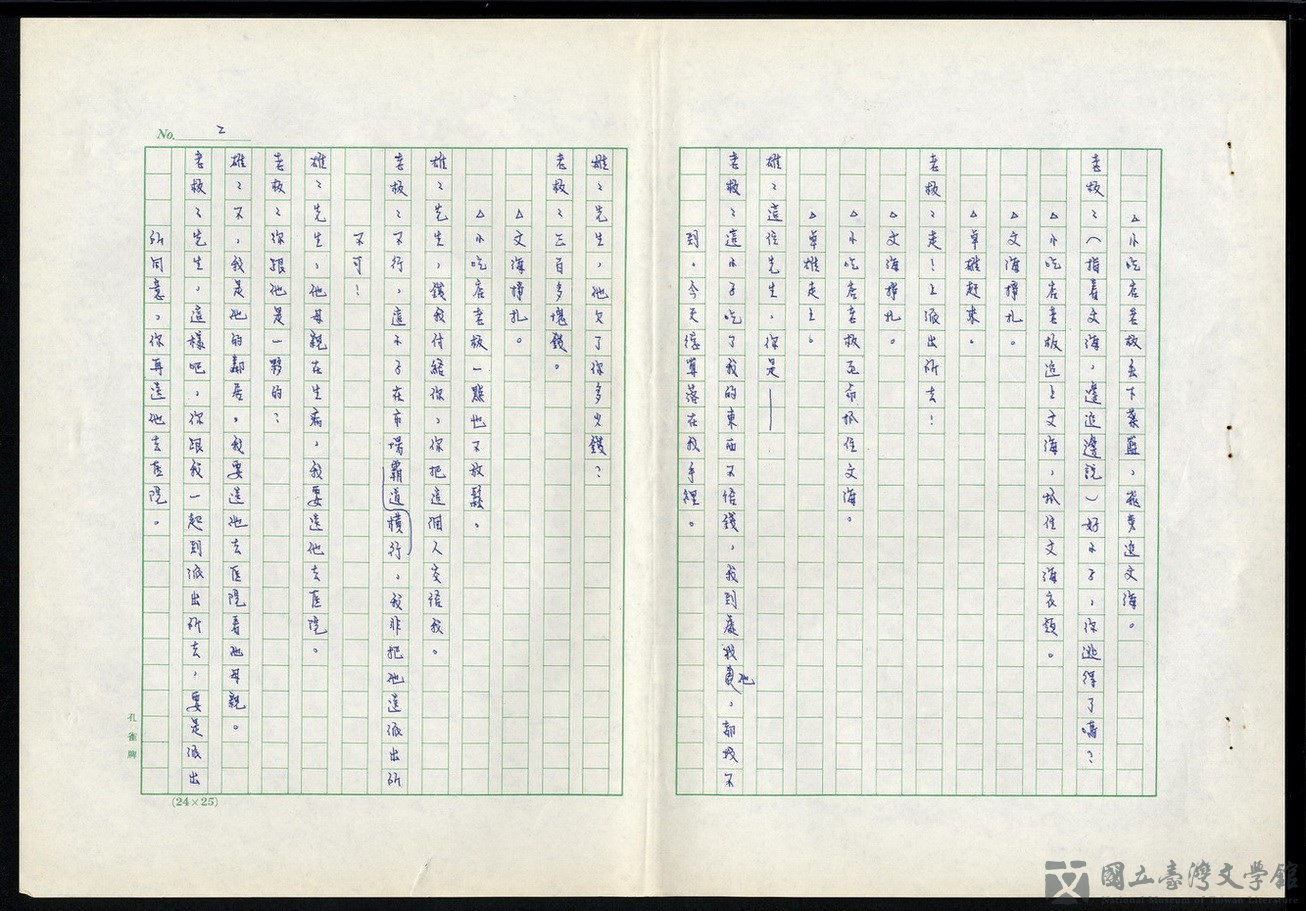 △小吃店老板丟下菜籃，飛奔追文海。
老板：（指着文海，邊追邊說）好小子，你逃得了嗎？
△小吃店老板追上文海，抓住文海衣領。
△文海掙扎。
△卓雄趕來。
老板：走！上派出所去！
△文海掙扎。
△小吃店老板死命抓住文海。
△卓雄走上。
雄：這位先生，你是——
老板：這小子吃了我的東西不給錢，我到處找他，都找不
到。今天總算落在我手裡。
雄：先生，他欠了你多少錢？
老板：三百多塊錢。
△文海掙扎。
△小吃店老板一點也不放鬆。
雄：先生，錢我付給你，你把這個人交給我。
老板：不行，這小子在市場霸道橫行，我非把他送派出所
不可！
雄：先生，他母親在生病，我要送他去医院。
老板：你跟他是一夥的？
雄：不，我是他的鄰居，我要送他去医院看他母親。
老板：先生，這樣吧，你跟我一起到派出所去，要是派出
所同意，你再送他去医院。
No. 2
(24×25)
孔雀牌
國立臺灣文學館
National Museum of Taiwan Literature